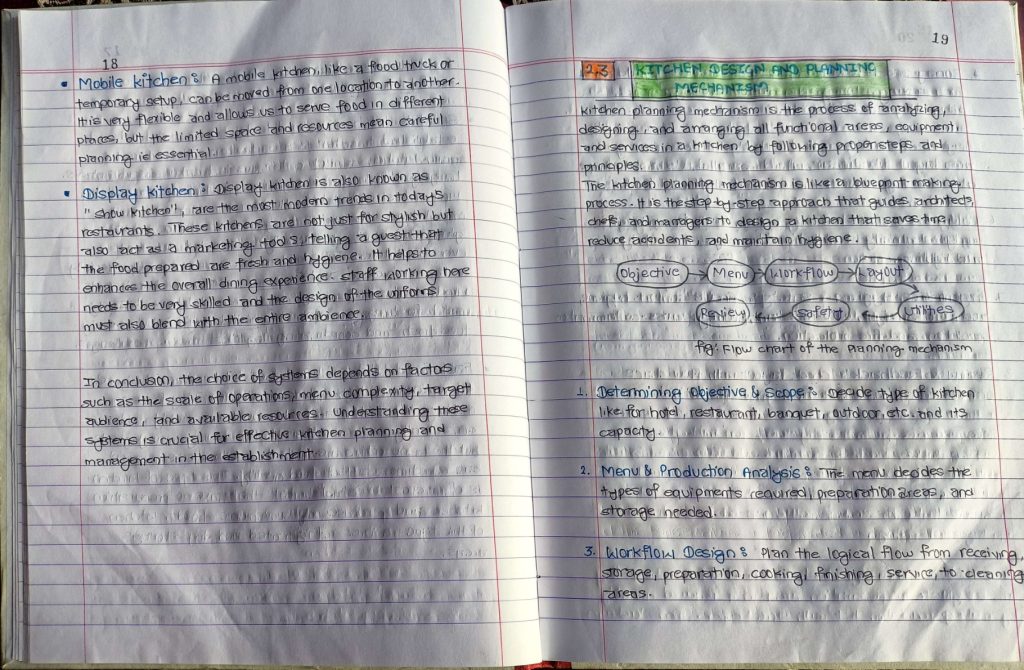 18
• Mobile kitchen : A mobile kitchen, like a food truck or
temporary setup, can be moved from one location to another.
It is very flexible and allows us to serve food in different
places, but the limited space and resources mean careful
planning is essential.
• Display kitchen : Display kitchen is also known as
"show kitchen", are the most modern trends in today's
restaurants. These kitchens are not just for stylish but
also act as a marketing tools, telling a guest that
the food prepared are fresh and hygiene. It helps to
enhances the overall dining experience. staff working here
needs to be very skilled and the design of the uniforms
must also blend with the entire ambience.
In conclusion, the choice of systems depends on factors
such as the scale of operations, menu complexity, target
audience, and available resources. Understanding these
systems is crucial for effective kitchen planning and
management in the establishment.
19
2.3 KITCHEN DESIGN AND PLANNING
MECHANISM
Kitchen planning mechanism is the process of analyzing,
designing, and arranging all functional areas, equipment,
and services in a kitchen by following proper steps and
principles.
The kitchen planning mechanism is like a blueprint-making
process. It is the step-by-step approach that guides architects,
chefs, and managers to design a kitchen that saves time,
reduce accidents, and maintain hygiene.
Objective → Menu → Workflow → Layout
Review ← Safety ← Utilities
fig: Flow chart of the Planning mechanism
1. Determining Objective & Scope : Decide type of kitchen
like for hotel, restaurant, banquet, outdoor, etc. and its
capacity.
2. Menu & Production Analysis : The menu decides the
types of equipments required, preparation areas, and
storage needed.
3. Workflow Design : Plan the logical flow from receiving,
storage, preparation, cooking, finishing, service, to cleaning
areas.